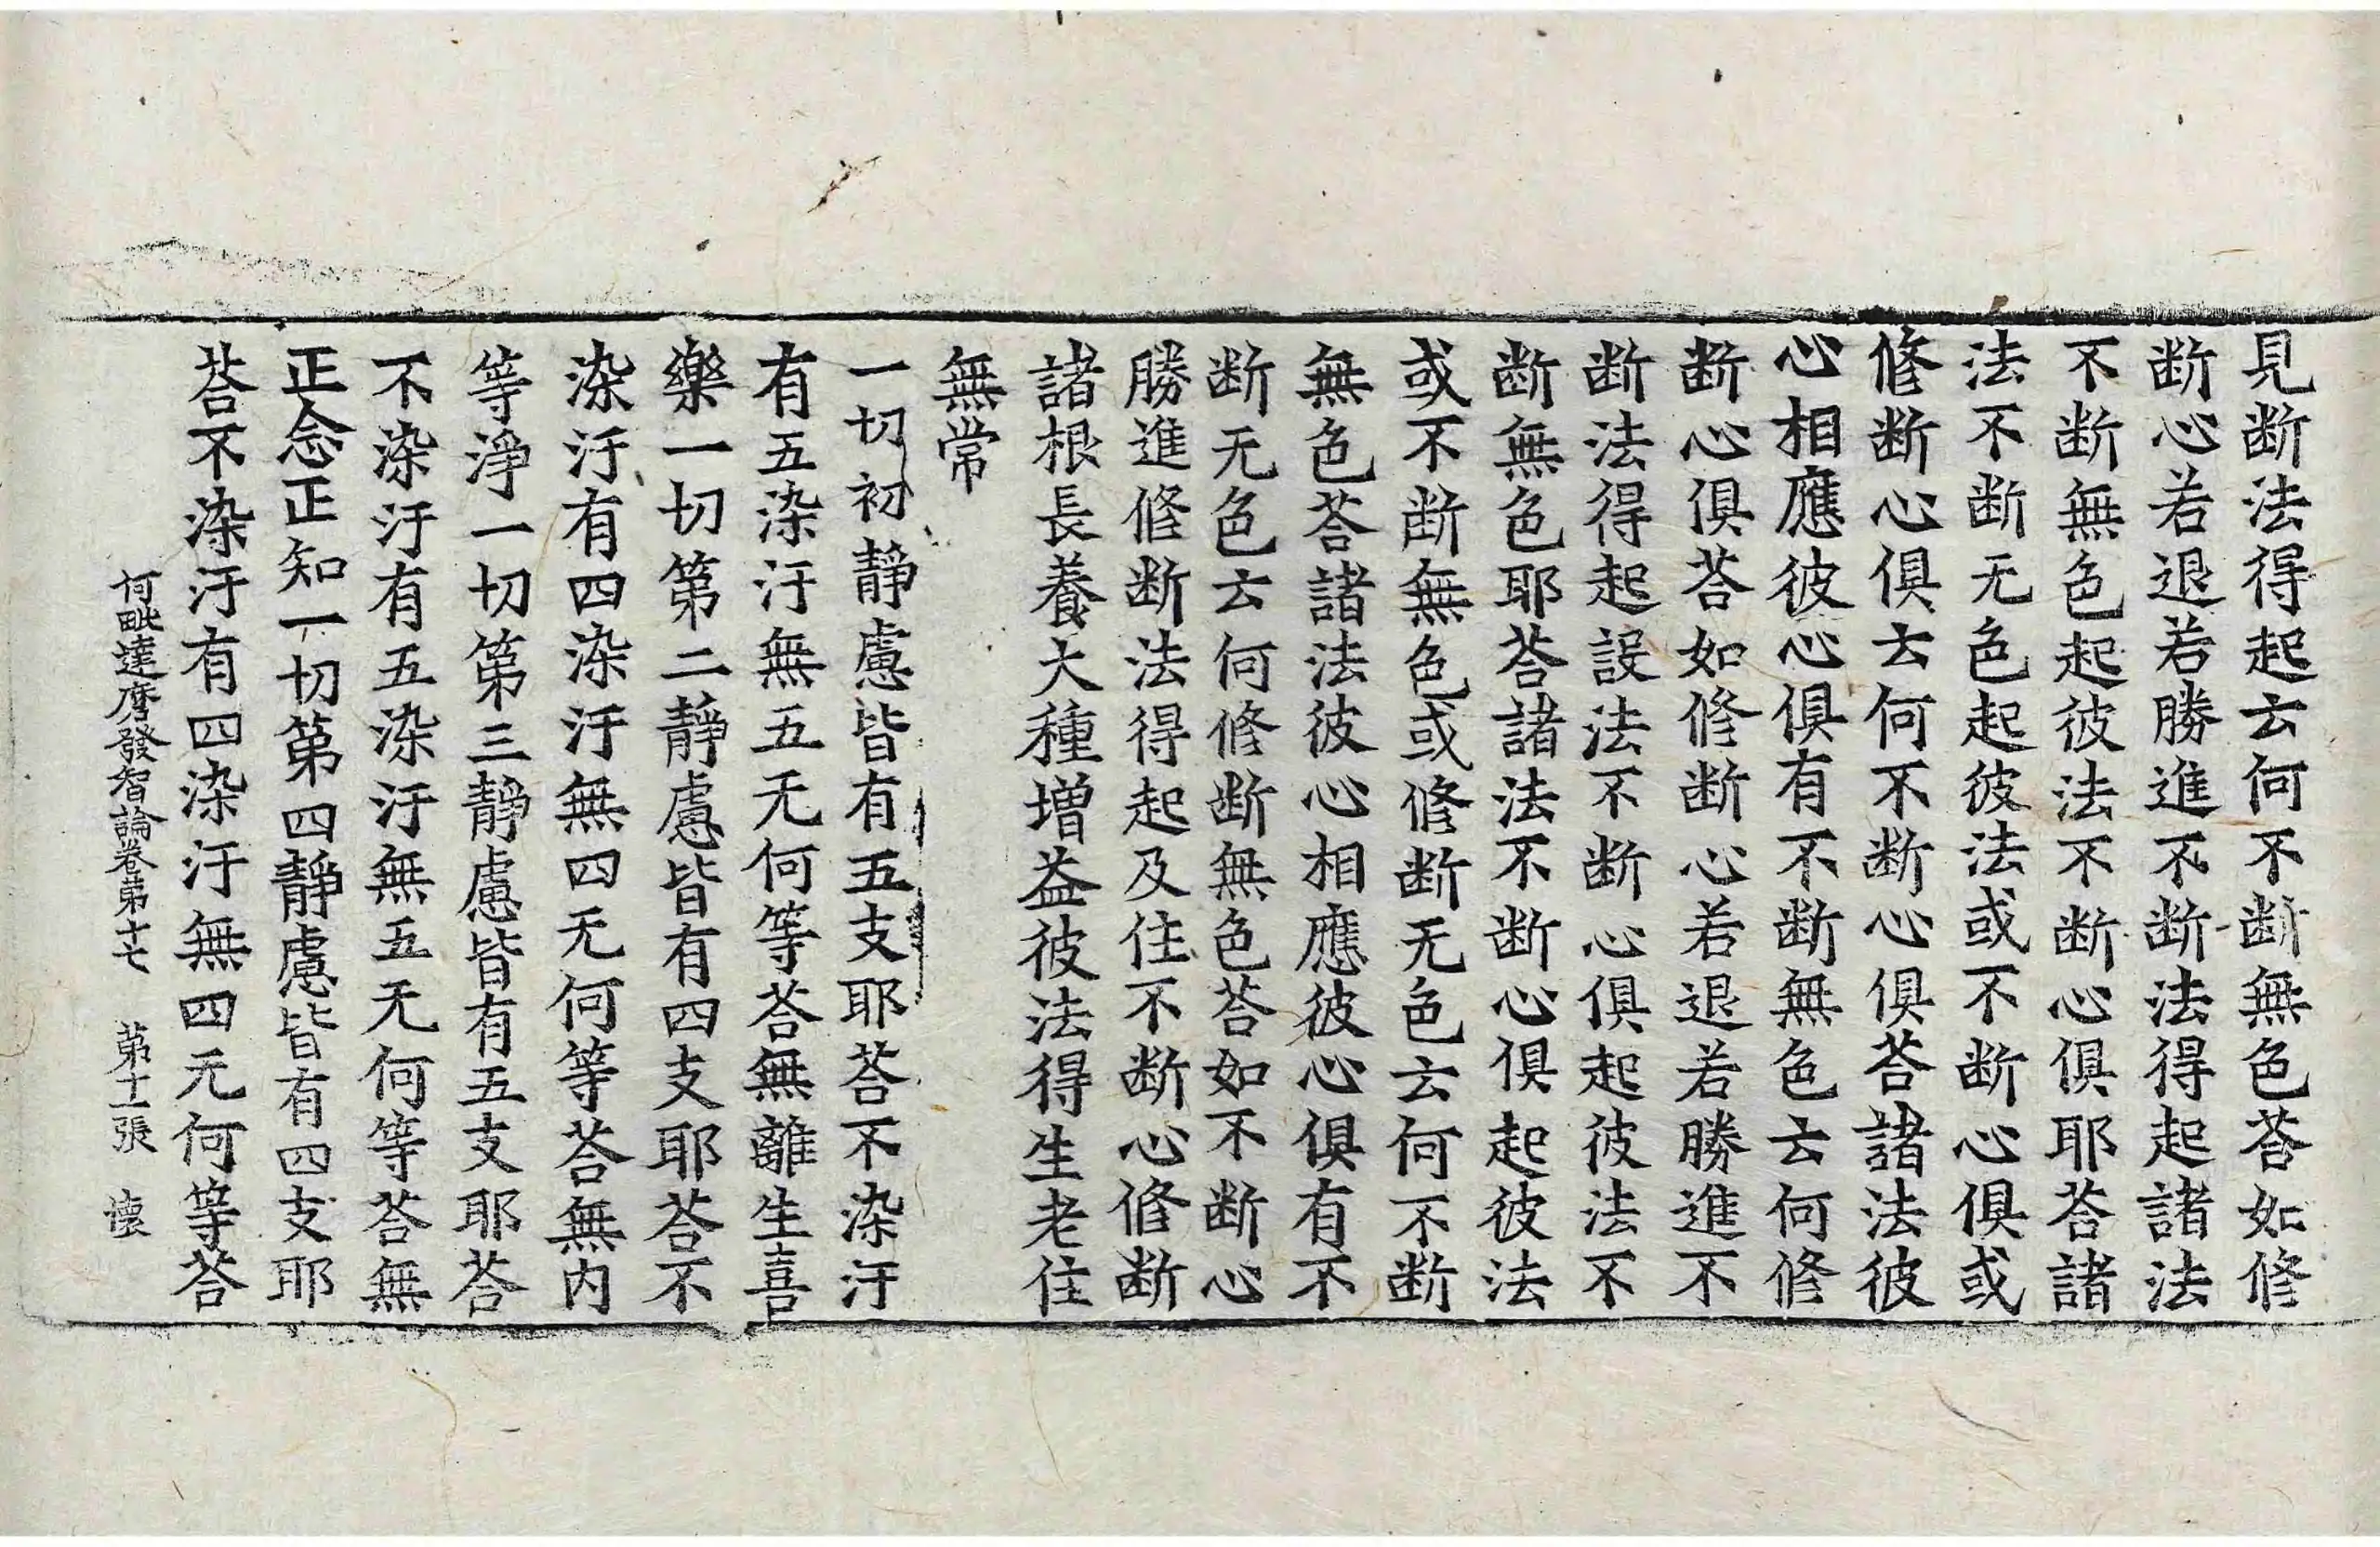 見断法得起云何不断無色荅如修
断心若退若勝進不断法得起諸法
不断無色起彼法不断心俱耶荅諸
法不断无色起彼法或不断心俱或
修断心俱云何不断心俱荅諸法彼
心相應彼心俱有不断無色云何修
断心俱荅如修断心若退若勝進不
断法得起設法不断心俱起彼法不
断無色耶荅諸法不断心俱起彼法
或不断無色或修断无色云何不断
無色荅諸法彼心相應彼心俱有不
断无色云何修断無色荅如不断心
勝進修断法得起及住不断心修断
諸根長養大種增益彼法得生老住
無常
一切初静慮皆有五支耶荅不染汙
有五染汙無五无何等荅無離生喜
樂一切第二靜慮皆有四支耶荅不
染汙有四染汙無四无何等荅無内
等淨一切第三靜慮皆有五支耶荅
不染汙有五染汙無五无何等荅無
正念正知一切第四靜慮皆有四支耶
荅不染汙有四染汙無四无何等荅
阿毗達磨發智論卷第十七 第十一張 懷